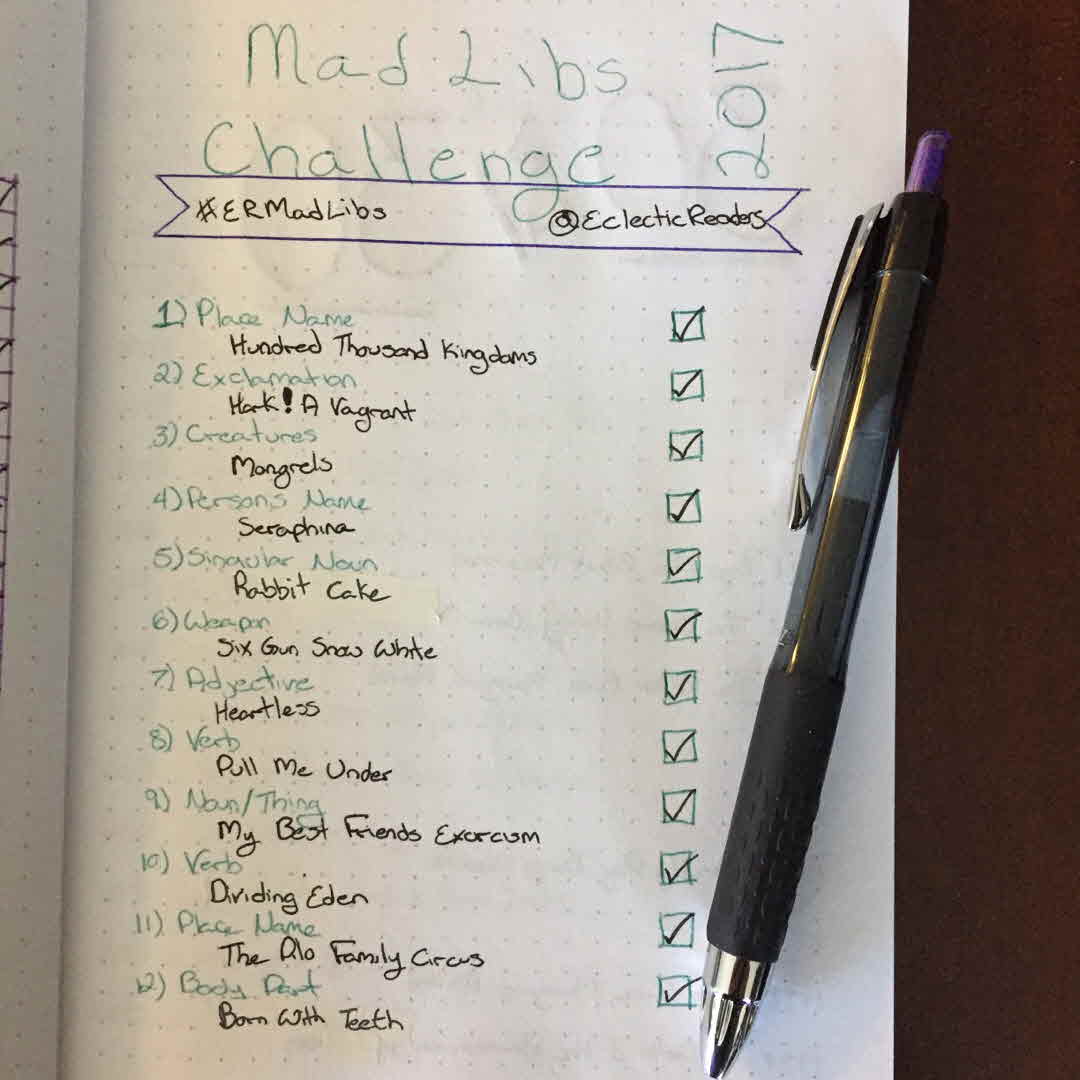 Mad Libs
Challenge
2017
#ERMadLibs @EclecticReaders
1) Place Name
Hundred Thousand Kingdoms
2) Exclamation
Hark! A Vagrant
3) Creatures
Mongrels
4) Persons Name
Seraphina
5) Singular Noun
Rabbit Cake
6) Weapon
Six Gun Snow White
7) Adjective
Heartless
8) Verb
Pull Me Under
9) Noun/Thing
My Best Friends Exorcism
10) Verb
Dividing Eden
11) Place Name
The Pilo Family Circus
12) Body Part
Born With Teeth